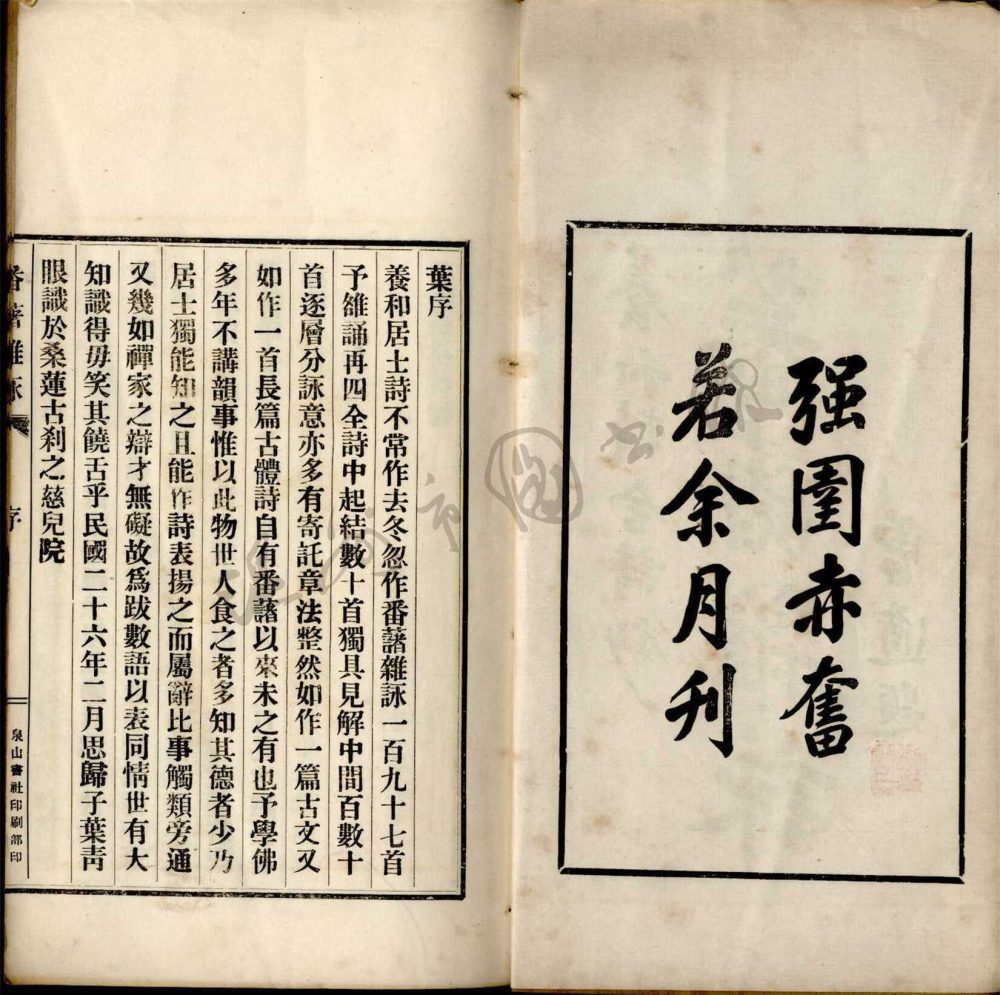 强圉赤奮
若余月刋
葉序
養和居士詩不常作去冬忽作番藷雜詠一百九十七首
予雒誦再四全詩中起結數十首獨具見解中間百數十
首逐層分詠意亦多有寄託章法整然如作一篇古文又
如作一首長篇古體詩自有番藷以來未之有也予學佛
多年不講韻事惟以此物世人食之者多知其德者少乃
居士獨能知之且能作詩表揚之而屬辭比事觸類旁通
又幾如禪家之辯才無礙故爲跋數語以表同情世有大
知識得毋笑其饒舌乎民國二十六年二月思歸子葉靑
眼識於桑蓮古刹之慈兒院
番藷雜詠
序
泉山書社印刷部印